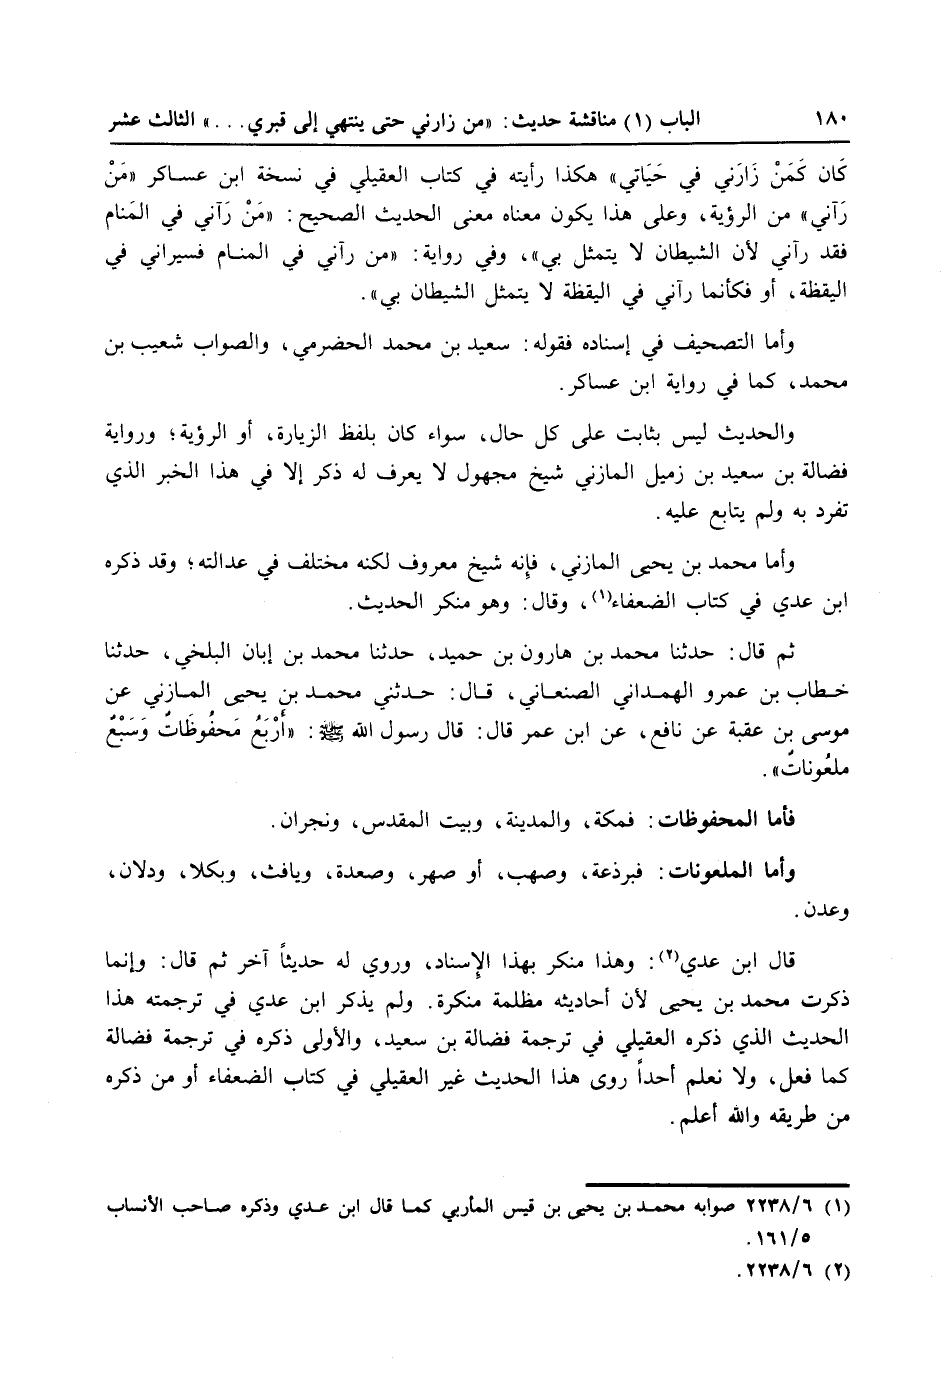 ١٨٠ الباب (١) مناقشة حديث: «من زارني حتى ينتهي إلى قبري...» الثالث عشر
كَان كَمَنْ زَارَني في حَيَاتي» هكذا رأيته في كتاب العقيلي في نسخة ابن عساكر «مَنْ
رَآني» من الرؤية، وعلى هذا يكون معناه معنى الحديث الصحيح: «مَنْ رَآني في المَنام
فقد رآني لأن الشيطان لا يتمثل بي»، وفي رواية: «من رآني في المنام فسيراني في
اليقظة، أو فكأنما رآني في اليقظة لا يتمثل الشيطان بي».
وأما التصحيف في إسناده فقوله: سعيد بن محمد الحضرمي، والصواب شعيب بن
محمد، كما في رواية ابن عساكر.
والحديث ليس بثابت على كل حال، سواء كان بلفظ الزيارة، أو الرؤية؛ ورواية
فضالة بن سعيد بن زميل المازني شيخ مجهول لا يعرف له ذكر إلا في هذا الخبر الذي
تفرد به ولم يتابع عليه.
وأما محمد بن يحيى المازني، فإنه شيخ معروف لكنه مختلف في عدالته؛ وقد ذكره
ابن عدي في كتاب الضعفاء(١)، وقال: وهو منكر الحديث.
ثم قال: حدثنا محمد بن هارون بن حميد، حدثنا محمد بن إبان البلخي، حدثنا
خطاب بن عمرو الهمداني الصنعاني، قال: حدثني محمد بن يحيى المازني عن
موسى بن عقبة عن نافع، عن ابن عمر قال: قال رسول الله ﷺ: «أَرْبَعُ مَحفُوظَاتٌ وَسَبْعٌ
ملعُوناتٌ».
فأما المحفوظات: فمكة، والمدينة، وبيت المقدس، ونجران.
وأما الملعونات: فبرذعة، وصهب، أو صهر، وصعدة، ويافث، وبكلا، ودلان،
وعدن.
قال ابن عدي(٢): وهذا منكر بهذا الإسناد، وروي له حديثاً آخر ثم قال: وإنما
ذكرت محمد بن يحيى لأن أحاديثه مظلمة منكرة. ولم يذكر ابن عدي في ترجمته هذا
الحديث الذي ذكره العقيلي في ترجمة فضالة بن سعيد، والأولى ذكره في ترجمة فضالة
كما فعل، ولا نعلم أحداً روى هذا الحديث غير العقيلي في كتاب الضعفاء أو من ذكره
من طريقه والله أعلم.
(١) ٢٢٣٨/٦ صوابه محمد بن يحيى بن قيس المأربي كما قال ابن عدي وذكره صاحب الأنساب
١٦١/٥.
(٢) ٢٢٣٨/٦.